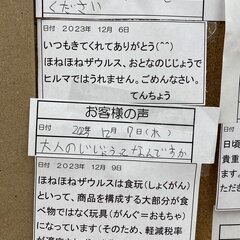 ください
日付 2023年 12月 6日
いつもきてくれてありがとう(^^)
ほねほねザウルス、おとなのじじょうで
ヒルマではうれません。ごめんなさい。
てんちょう
お客様の声
日付 2023年 12月 7日(木)
大人のじじょうってなんですか
日付 2023年 12月 9日
ほねほねザウルスは食玩(しょくがん)
といって、商品を構成する大部分が食
べ物ではなく玩具(がんぐ=おもちゃ)
になっています(そのため、軽減税率
日付
日頃